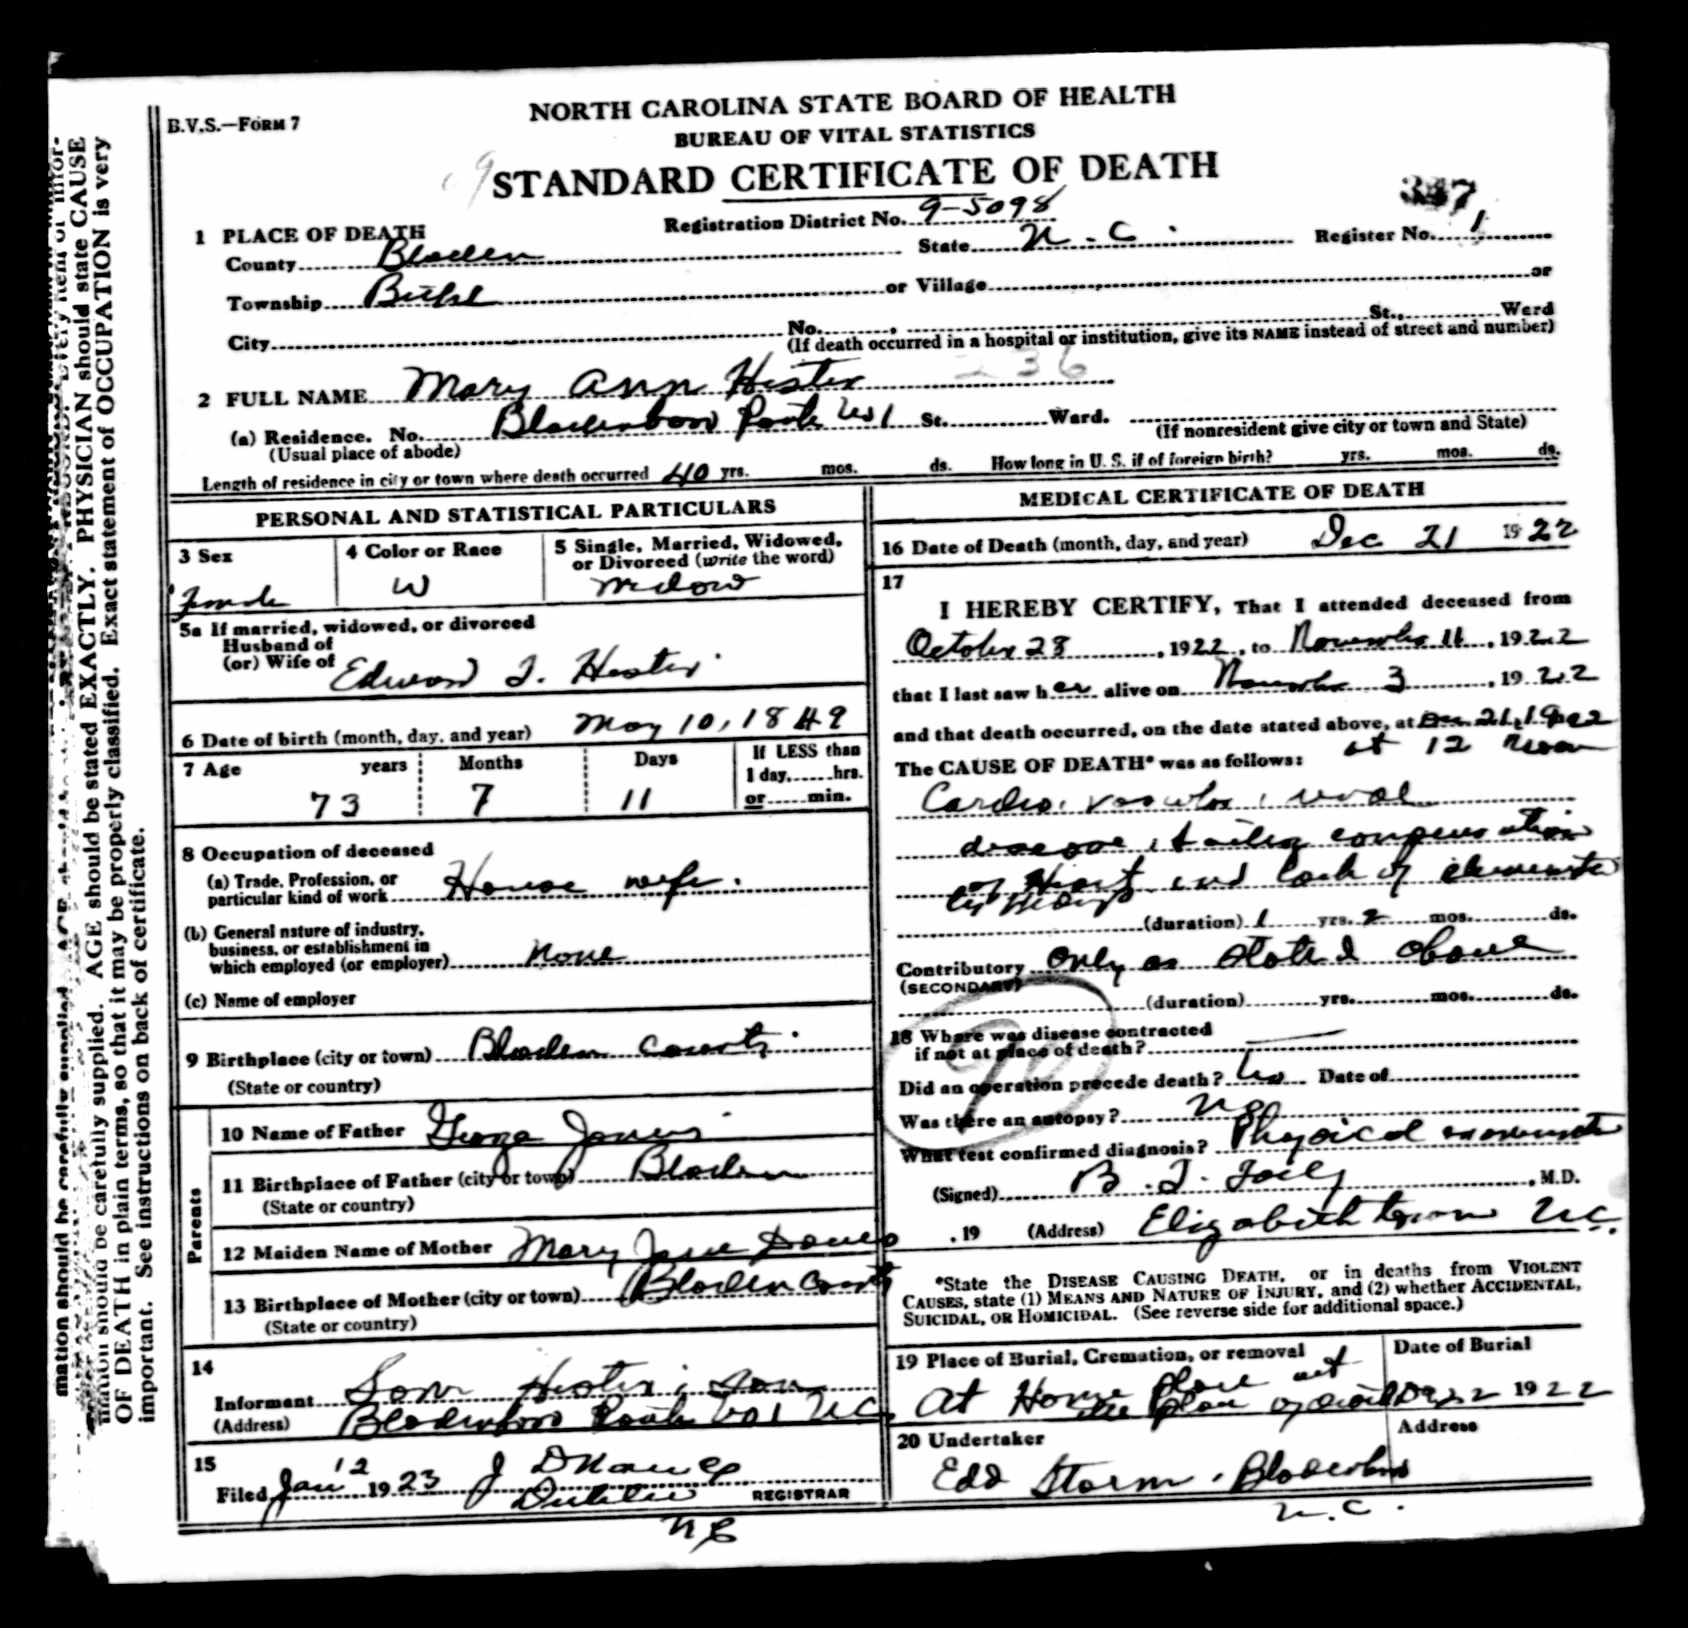 B.V.S.—FORM 7
NORTH CAROLINA STATE BOARD OF HEALTH
BUREAU OF VITAL STATISTICS
STANDARD CERTIFICATE OF DEATH
347
1 PLACE OF DEATH
Registration District No. 9-5098
County Bladen State N.C. Register No. 1
Township or Village or
City No. St., Ward
(If death occurred in a hospital or institution, give its NAME instead of street and number)
236
2 FULL NAME Mary Ann Hester
(a) Residence. No. Bladenboro Route No 1 St. Ward.
(Usual place of abode) (If nonresident give city or town and State)
Length of residence in city or town where death occurred 40 yrs. mos. ds. How long in U. S. if of foreign birth? yrs. mos. ds.
PERSONAL AND STATISTICAL PARTICULARS
3 Sex
Female
4 Color or Race
W
5 Single, Married, Widowed, or Divorced (write the word)
Widow
5a If married, widowed, or divorced
Husband of
(or) Wife of Edward J. Hester
6 Date of birth (month, day, and year) May 10, 1849
7 Age years Months Days If LESS than
1 day, hrs.
73 7 11 or min.
8 Occupation of deceased
(a) Trade, Profession, or
particular kind of work House wife.
(b) General nature of industry,
business, or establishment in
which employed (or employer) none
(c) Name of employer
9 Birthplace (city or town) Bladen County
(State or country)
Parents
10 Name of Father George
11 Birthplace of Father (city or town) Bladen
(State or country)
12 Maiden Name of Mother Mary Jane
13 Birthplace of Mother (city or town) Bladen County
(State or country)
14
Informant Hester, son
(Address) Bladenboro Route No 1 N.C.
15
Filed Jan 12 1923 J
REGISTRAR
NC
MEDICAL CERTIFICATE OF DEATH
16 Date of Death (month, day, and year) Dec 21 1922
17
I HEREBY CERTIFY, That I attended deceased from
October 28, 1922, to November 11, 1922
that I last saw her alive on November 3, 1922
and that death occurred, on the date stated above, at Dec 21, 1922
at 12 noon
The CAUSE OF DEATH* was as follows:
Cardio, vascular, renal
disease, failing compensation
of Heart and lack of
(duration) 1 yrs. 2 mos. ds.
Contributory Only as stated above
(SECONDARY)
(duration) yrs. mos. ds.
18 Where was disease contracted
if not at place of death?
Did an operation precede death? No Date of
Was there an autopsy? No
What test confirmed diagnosis? Physical
(Signed) B. F. , M.D.
, 19 (Address) Elizabethtown N.C.
*State the DISEASE CAUSING DEATH, or in deaths from VIOLENT
CAUSES, state (1) MEANS AND NATURE OF INJURY, and (2) whether ACCIDENTAL,
SUICIDAL, OR HOMICIDAL. (See reverse side for additional space.)
19 Place of Burial, Cremation, or removal
At Home place
Date of Burial
22 1922
20 Undertaker
Edd Storm, Bladenboro
Address
N.C.
mation should be carefully supplied. AGE should be stated EXACTLY. PHYSICIAN should state CAUSE
OF DEATH in plain terms, so that it may be properly classified. Exact statement of OCCUPATION is very
important. See instructions on back of certificate.